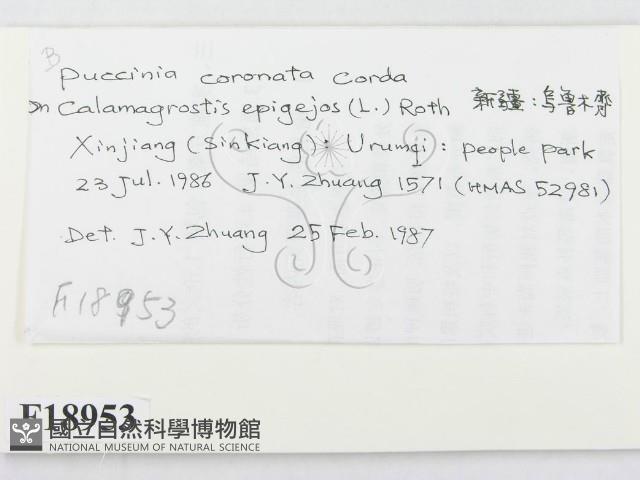 B
Puccinia coronata Corda
On Calamagrostis epigejos (L.) Roth 新疆：烏魯木齊
Xinjiang (Sinkiang): Urumqi: people park
23 Jul. 1986 J.Y. Zhuang 1571 (HMAS 52981)
Det. J.Y. Zhuang 25 Feb. 1987
F18953
F18953
國立自然科學博物館
NATIONAL MUSEUM OF NATURAL SCIENCE